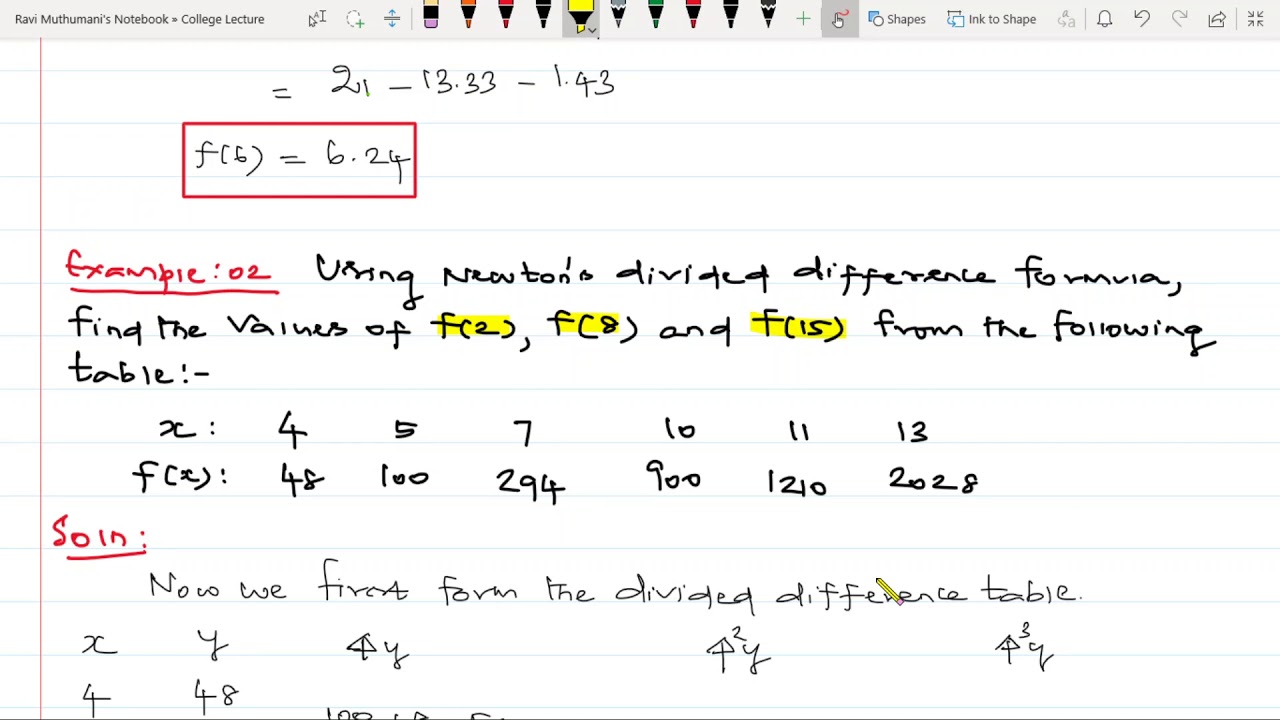 Ravi Muthumani's Notebook » College Lecture
Shapes
Ink to Shape
= 21 – 13.33 – 1.43
f(6) = 6.24
Example:02 Using Newton's divided difference formula,
find the values of f(2), f(8) and f(15) from the following
table:-
x: 4 5 7 10 11 13
f(x): 48 100 294 900 1210 2028
Soln:
Now we first form the divided difference table.
x y ⍋y ⍋²y ⍋³y
4 48